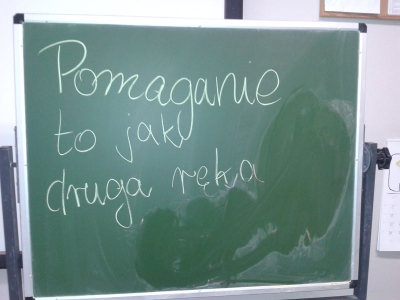 Pomaganie
to jak
druga ręka